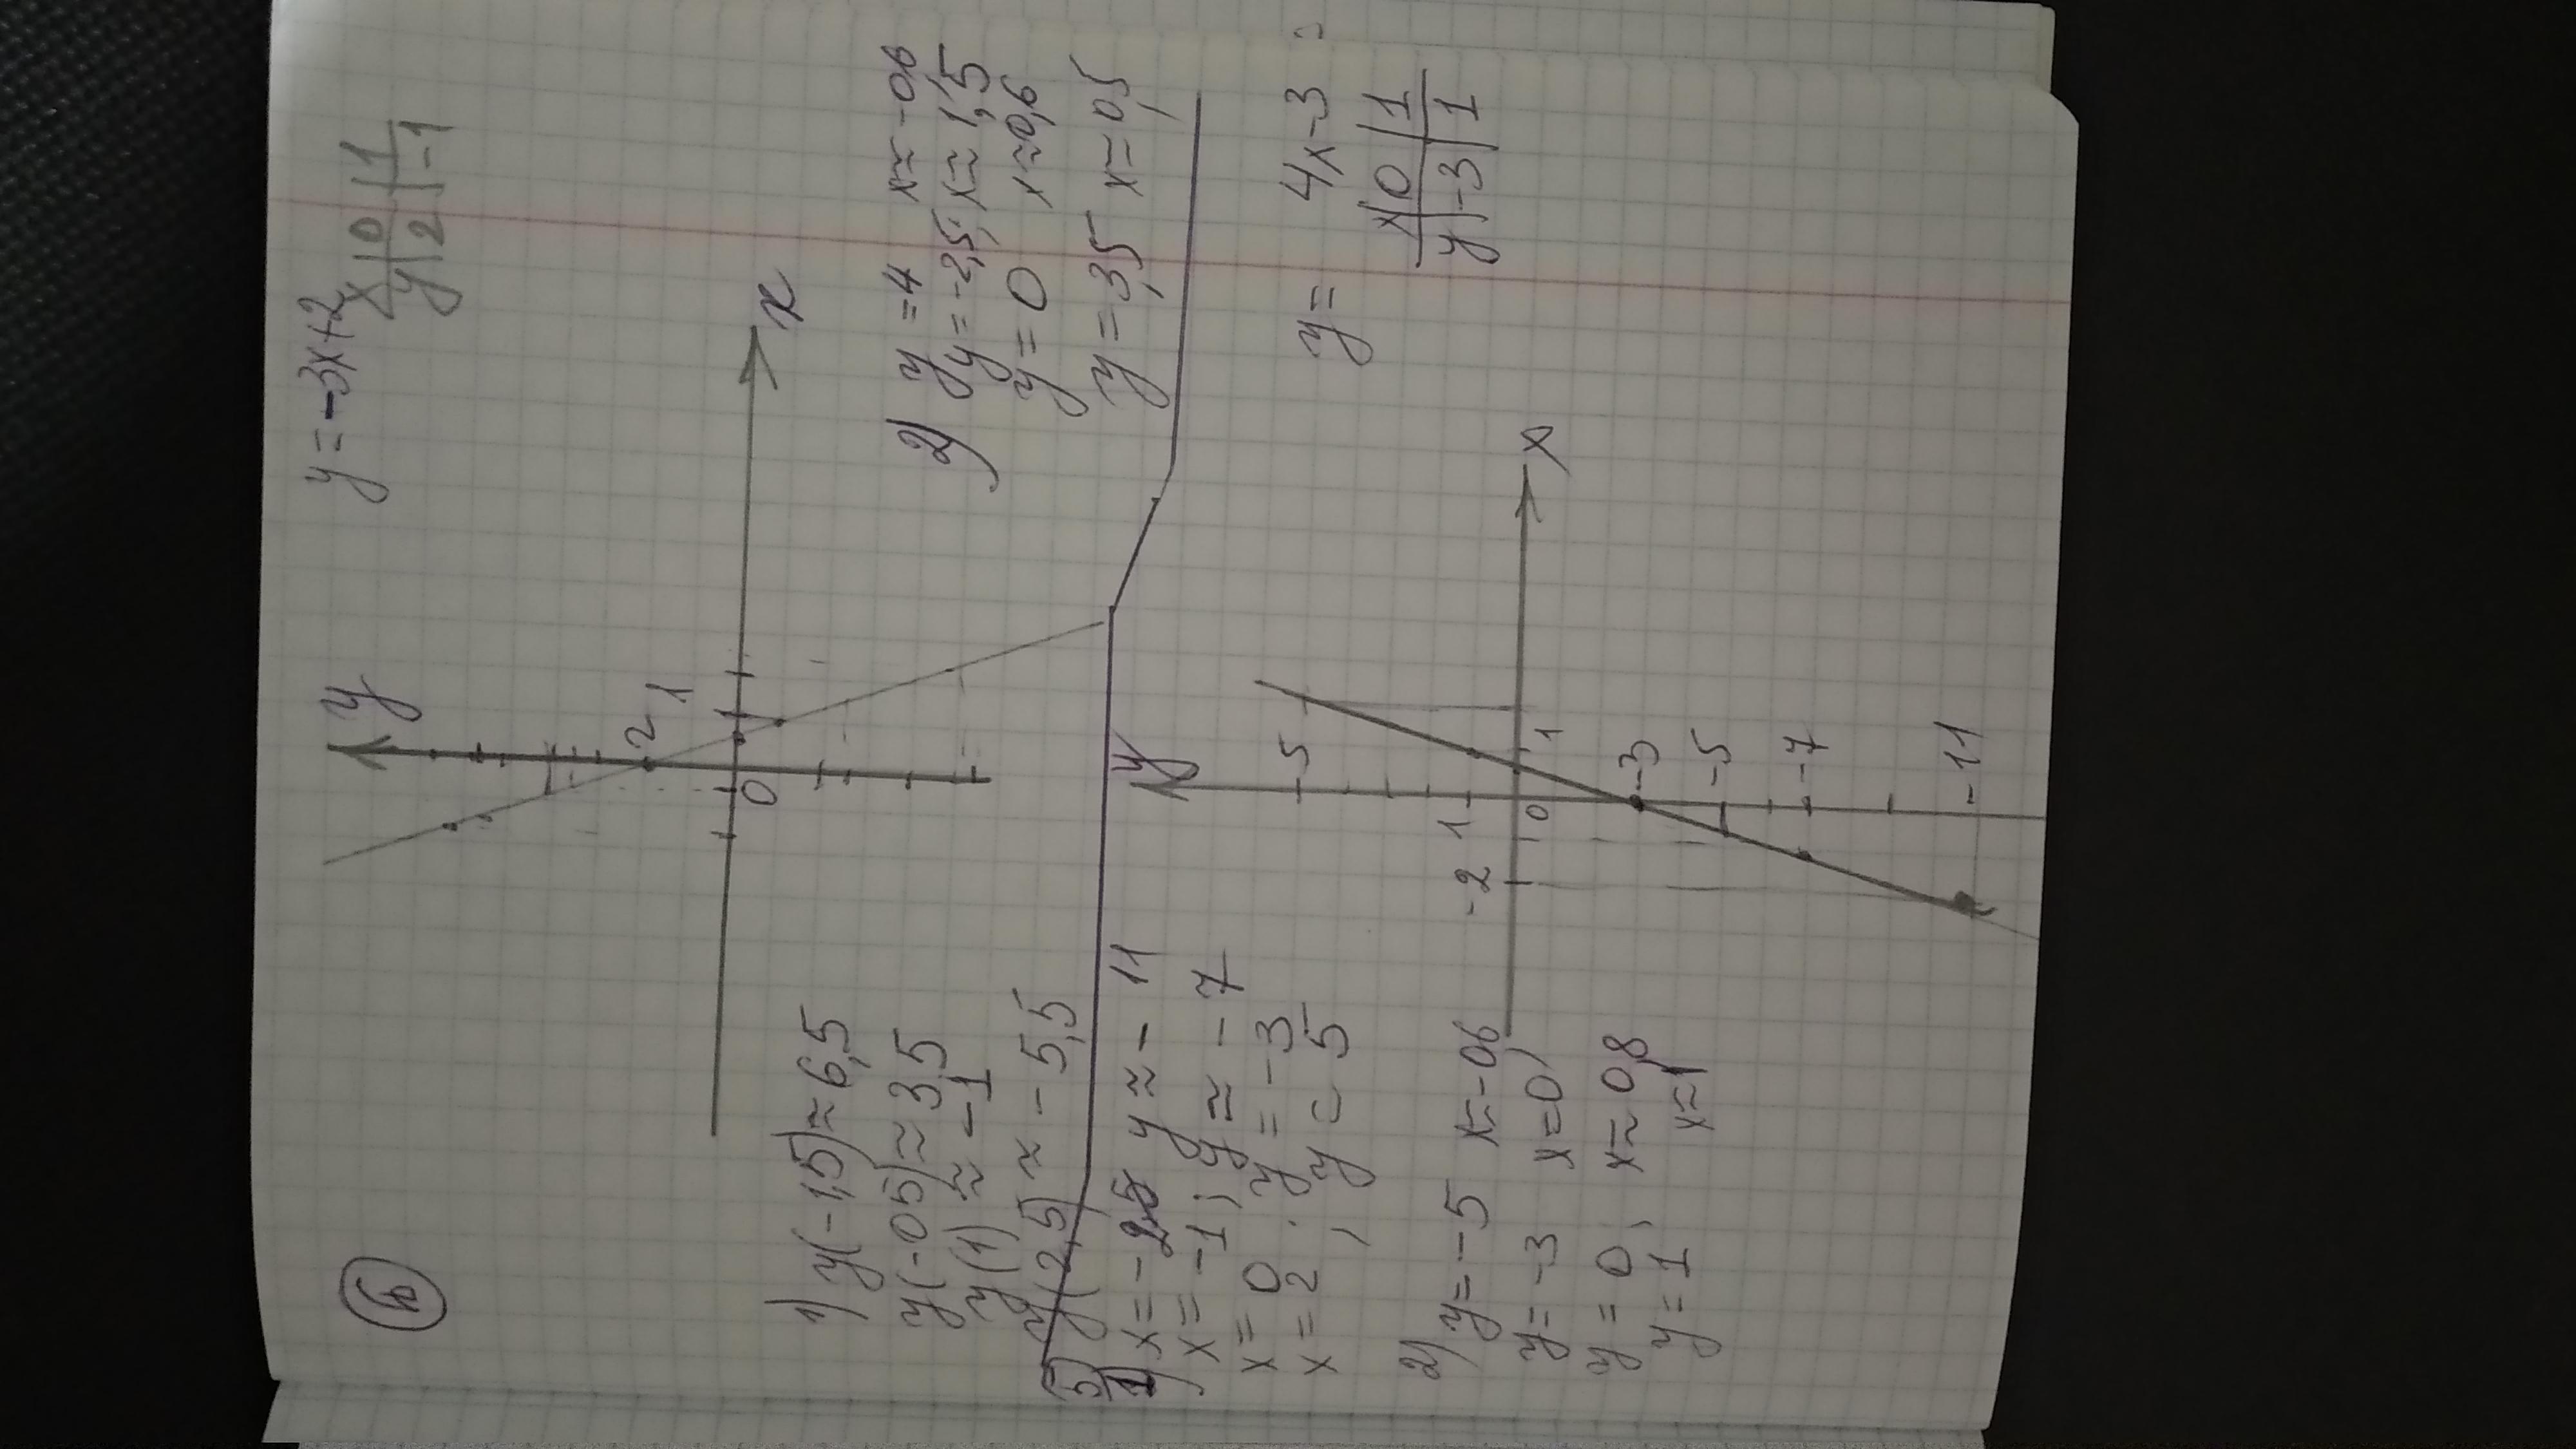 6
y = -3x+2
x | 0 | 1
y | 2 | -1
y
2
1
0
x
1) y(-1,5) ≈ 6,5
y(-0,5) ≈ 3,5
y(1) ≈ -1
y(2,5) ≈ -5,5
2) y = 4 x ≈ -0,6
y = -2,5; x ≈ 1,5
y = 0 x ≈ 0,6
y = 3,5 x = 0,5
5
1) x = -2 y ≈ -11
x = -1; y ≈ -7
x = 0 y = -3
x = 2; y = 5
2) y = -5 x ≈ -0,6
y = -3 x = 0
y = 0, x ≈ 0,8
y = 1 x ≈ 1
y = 4x-3
x | 0 | 1
y | -3 | 1
y
5
1
-2
0
1
x
-3
-5
-7
-11